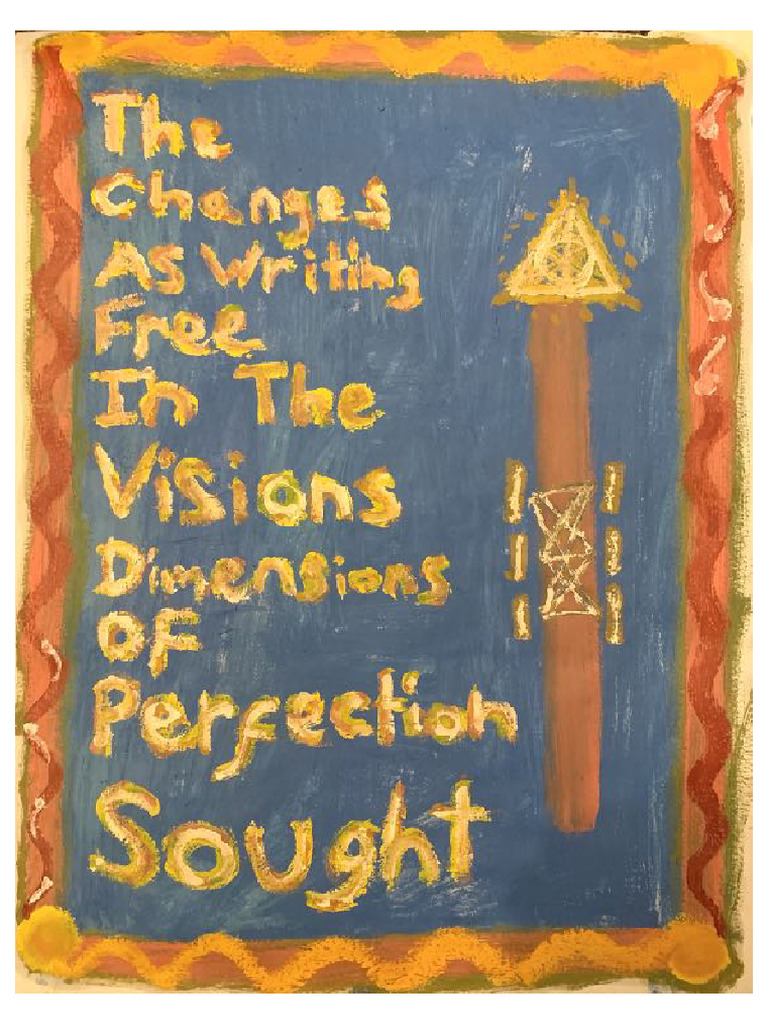 The
Changes
As Writing
Free
In The
Visions
Dimensions
OF
Perfection
Sought